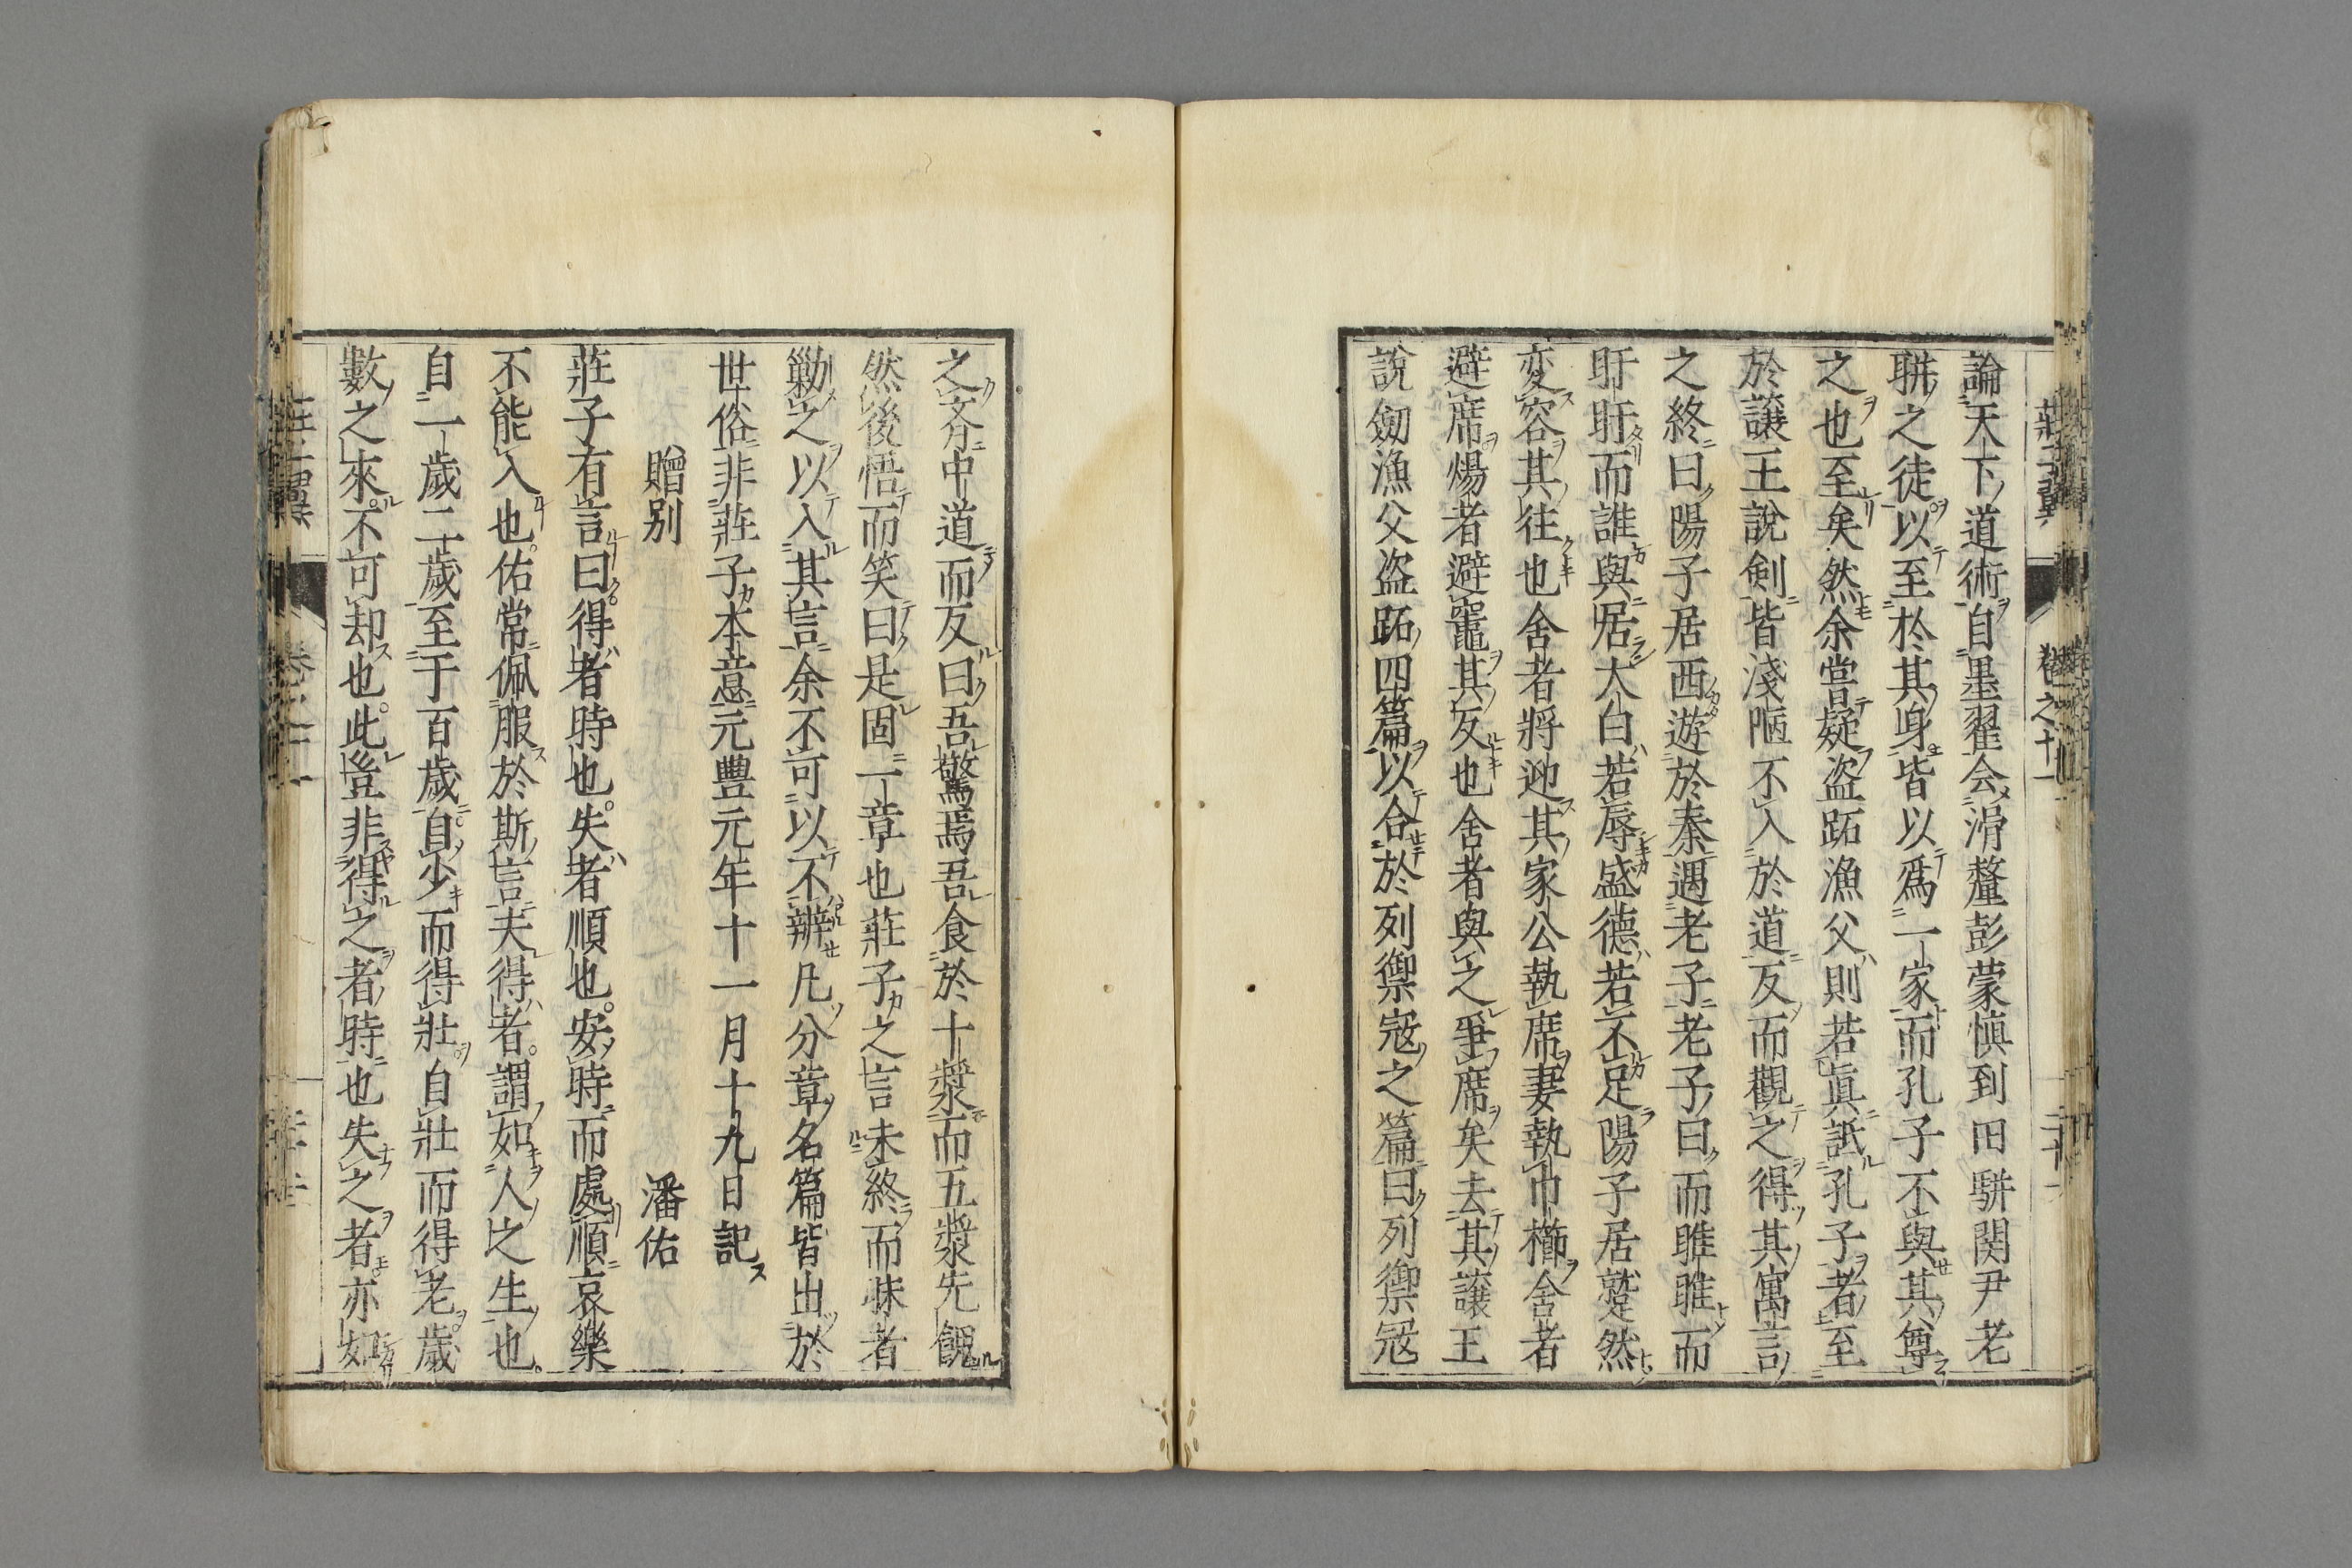 莊子翼　卷之十一
論天下道術自墨翟会滑釐彭蒙慎到田駢関尹老
聃之徒以至於其身皆以爲一家而孔子不與其尊
之也至矣然余嘗疑盗跖漁父則若真詆孔子者至
於譲王説剣皆淺陋不入於道反而觀之得其寓言
之終曰陽子居西遊於秦遇老子老子曰而睢睢而
盱盱而誰與居大白若辱盛德若不足陽子居蹵然
変容其徃也舍者將迎其家公執席妻執巾櫛舍者
避席煬者避竈其反也舍者與之爭席矣去其譲王
說劔漁父盗跖四篇以合於列禦寇之篇曰列禦寇
之齐中道而反曰吾驚焉吾食於十漿而五漿先饋
然後悟而笑曰是固一章也莊子之言未終而昧者
勦之以入其言余不可以不辨凡分章名篇皆出於
世俗非莊子本意元豊元年十一月十九日記
贈别
潘佑
莊子有言曰得者時也失者順也安時而處順哀樂
不能入也佑常佩服於斯言夫得者謂如人之生也
自一歲二歲至于百歲自少而得壮自壮而得老歲
數之來不可却也此豈非得之者時也失之者亦如